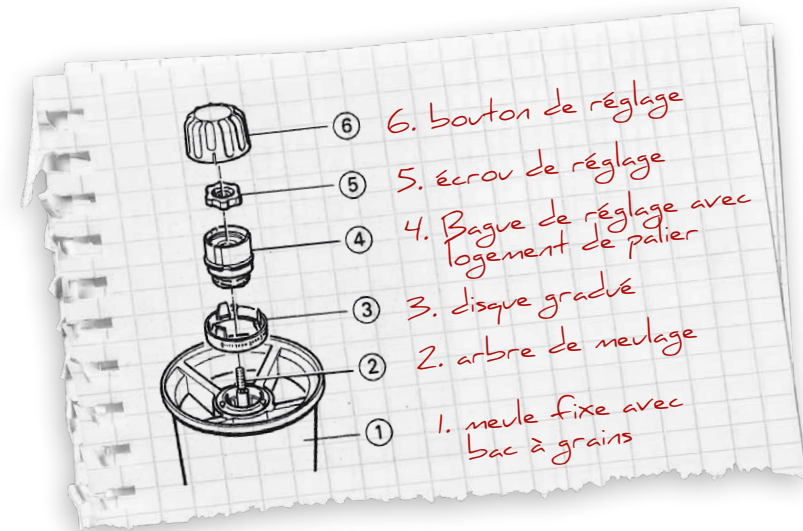 6
6. bouton de réglage
5
5. écrou de réglage
4
4. Bague de réglage avec
logement de palier
3
3. disque gradué
2
2. arbre de meulage
1
1. meule fixe avec
bac à grains